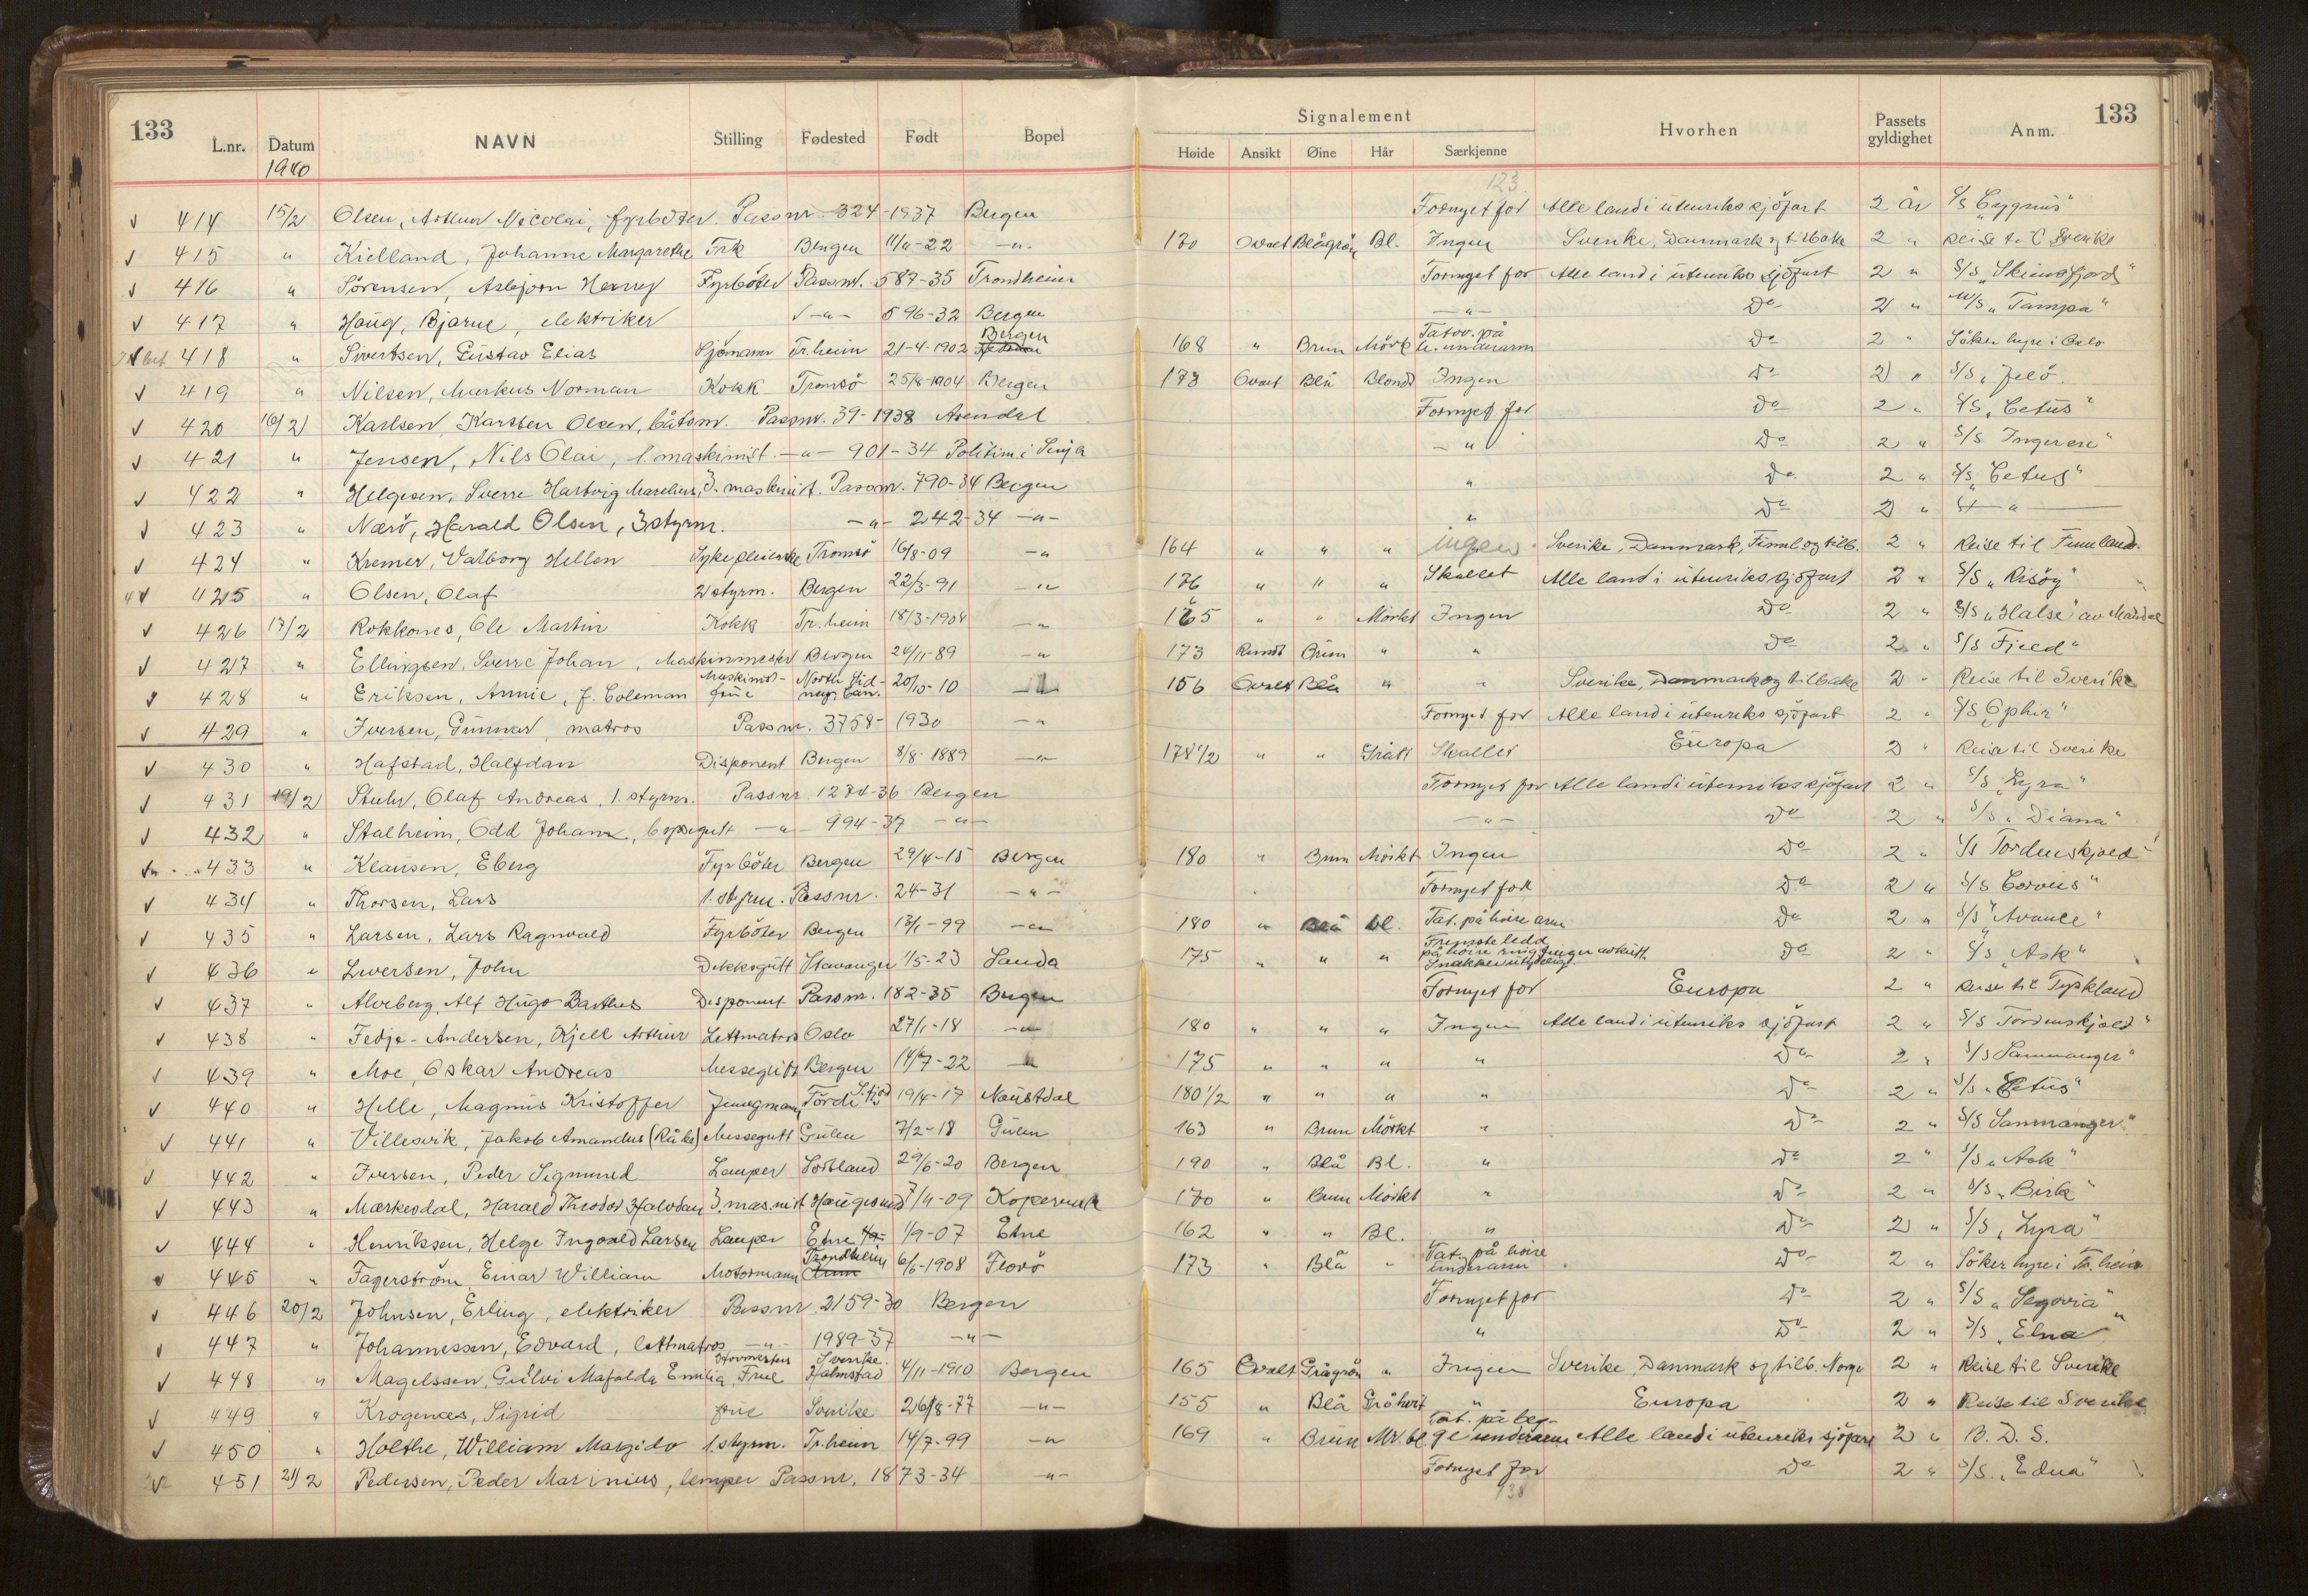 133 133
Signalement
L.nr. Datum NAVN Stilling Fødested Født Bopel Høide Ansikt Øine Hår Særkjenne Hvorhen Passets gyldighet Anm.
1940
123
414 15/2 Olsen, Arthur Nicolai, fyrböter. Passnr. 324-1937 Bergen Fornyet for Alle land i utenriks sjöfart 2 år S/S "Cygnus"
415 " Kielland, Johanne Margarethe Frk Bergen 11/11-22 -"- 170 Ovalt Blågrön Bl. Ingen Sverike, Danmark og tilbake 2 " Reise til Sverike
416 " Sörensen, Asbjorn Henry Fyrböter Passnr. 587-35 Trondheim Fornyet for Alle land i utenriks sjöfart 2 " S/S "Skiensfjord"
417 " Haug, Bjarne, elektriker -"- 596-32 Bergen -"- Do 2 " M/S "Tampa"
418 " Sivertsen, Gustav Elias Sjömann Tr.heim 21-4-1902 Bergen 168 " Brun Mörk Tatov. på h. underarm Do 2 " Söker hyre i Oslo
419 " Nilsen, Markus Norman Kokk Tromsö 25/8-1904 Bergen 173 Ovalt Blå Blond Ingen Do 2 " S/S "Jelö"
420 16/2 Karlsen, Karsten Olsen, båtsm. Passnr. 39-1938 Arendal Fornyet for Do 2 " S/S "Cetus"
421 " Jensen, Nils Olai, 1. maskinist -"- 901-34 Politim. i Senja -"- Do 2 " S/S Ingerese"
422 " Helgesen, Sverre Hartvig Marelius, 3. maskinist. Passnr. 790-34 Bergen " Do 2 " S/S "Cetus"
423 " Nærö, Harald Olsen, 3 styrm. -"- 242-34 -"- " Do 2 " -"-
424 " Kremer, Valborg Hellen Sykepleierske Tromsö 16/8-09 -"- 164 " " " Ingen Sverike, Danmark, Finnl. og tilb. 2 " Reise til Finnland.
425 " Olsen, Olaf 2 styrm. Bergen 22/3-91 -"- 176 " " " Skallet Alle land i utenriks sjöfart 2 " S/S "Risöy"
426 17/2 Rokkones, Ole Martin Kokk Tr.heim 18/3-1904 -"- 165 " " Mörkt Ingen Do 2 " S/S "Halse" av Mandal
427 " Ellingsen, Sverre Johan, Maskinmester Bergen 24/11-89 -"- 173 Rundt Brun " " Do 2 " S/S Fjeld"
428 " Eriksen, Annie, f. Coleman Maskinist-frue 20/10-10 -"- 156 Ovalt Blå " " Sverike, Danmark og tilbake 2 " Reise til Sverike
429 " Iversen, Gunnar, matros Passnr. 3758-1930 -"- Fornyet for Alle land i utenriks sjöfart 2 " S/S "Ophir"
430 " Hafstad, Halfdan Disponent Bergen 8/8-1889 -"- 178 1/2 " " Grått Skallet Europa 2 " Reise til Sverike
431 19/2 Stuhr, Olaf Andreas, 1. styrm. Passnr. 1284-36 Bergen Fornyet for Alle land i utenriks sjöfart 2 " S/S "Lyra"
432 " Stalheim, Odd Johan, byssegutt -"- 994-37 -"- -"- Do 2 " S/S "Diana"
433 " Klausen, Eberg Fyrböter Bergen 29/4-15 Bergen 180 " Brun Mörkt Ingen Do 2 " S/S Tordenskjold"
434 " Thorsen, Lars 1. styrm. Passnr. 24-31 -"- Fornyet for Do 2 " S/S Corvus"
435 " Larsen, Lars Ragnvald Fyrböter Bergen 13/1-99 -"- 180 " Blå bl. Tat. på höire arm Do 2 " S/S "Avance"
436 " Iversen, John Dekksgutt Stavanger 1/5-23 Sauda 175 " " " Fremste ledd på höire ringfinger avkutt. Snakker utydelig. Do 2 " S/S "Ask"
437 " Alveberg, Alf Hugo Barthus Disponent Passnr. 182-35 Bergen Fornyet for Europa 2 " Reise til Tyskland
438 " Fedje-Andersen, Kjell Arthur Lettmatros Oslo 27/1-18 -"- 180 " " " Ingen Alle land i utenriks sjöfart 2 " S/S Tordenskjold"
439 " Moe, Oskar Andreas Messegutt Bergen 14/7-22 -"- 175 " " " " Do 2 " S/S Sammanger"
440 " Helle, Magnus Kristoffer Jungmann Förde S.fjord 19/4-17 Naustdal 180 1/2 " " " " Do 2 " S/S "Cetus"
441 " Villesvik, Jakob Amandus (Råke) Messegutt Gulen 7/2-18 Gulen 163 " Brun Mörkt " Do 2 " S/S Sammanger"
442 " Iversen, Peder Sigmund Lemper Sortland 29/6-20 Bergen 190 " Blå Bl. " Do 2 " S/S "Ask"
443 " Markesdal, Harald Theodor Halvdan 3. mas.nist Haugesund 7/11-09 Kopervik 170 " Brun Mörkt " Do 2 " S/S "Birk"
444 " Henriksen, Helge Ingvald Larsen Lemper Etne 1/9-07 Etne 162 " " Bl. " Do 2 " S/S "Lyra"
445 " Fagerström, Einar William Motormann Trondheim 6/6-1908 Florö 173 " Blå " Tat. på höire underarm Do 2 " Söker hyre i Tr.heim
446 20/2 Johnsen, Erling, elektriker Passnr. 2159-30 Bergen Fornyet for Do 2 " S/S "Segovia"
447 " Johannessen, Edvard, lettmatros -"- 1989-37 -"- " Do 2 " S/S "Elna"
448 " Magelssen, Gulvi Mafalda Emilia, Hovmester Frue Sverike. Halmstad 4/11-1910 Bergen 165 Ovalt Grågrön " Ingen Sverike, Danmark og tilb. Norge 2 " Reise til Sverike
449 " Krogenæs, Sigrid frue Sverike 26/8-77 -"- 155 " Blå Gråhvit " Europa 2 " Reise til Sverike
450 " Holthe, William Margido 1. styrm. Tr.heim 14/7-99 -"- 169 " Brun Mk. bl. Tat. på beg-ge underarm Alle land i utenriks sjöfart 2 " B. D. S.
451 21/2 Pedersen, Peder Marinius, lemper Passnr. 1873-34 -"- Fornyet for Do 2 " S/S. "Edna"
138